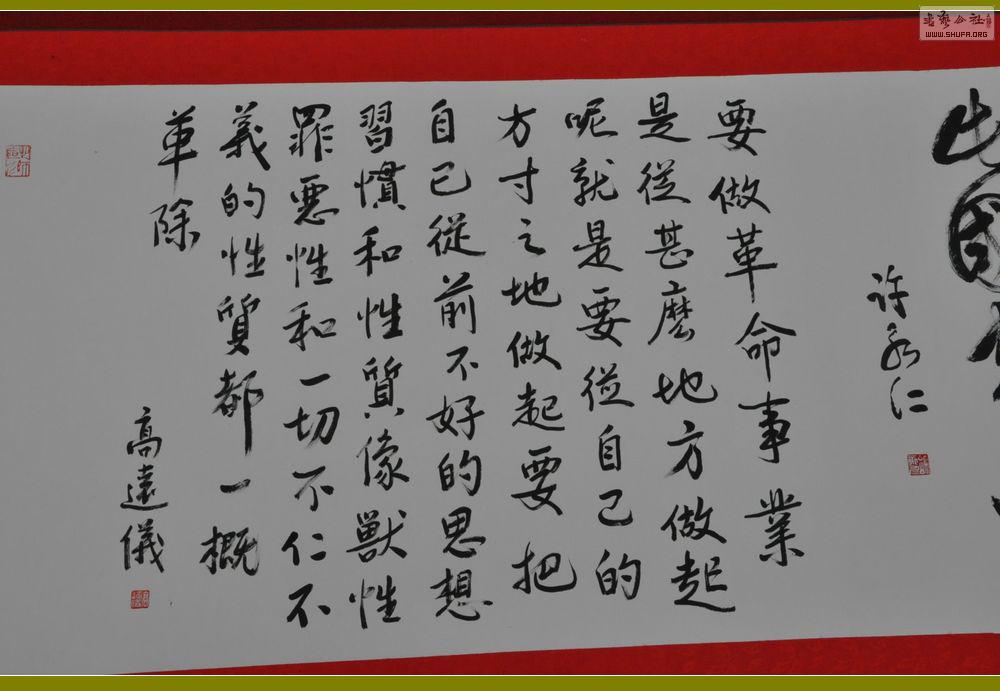 許永仁
要做革命事業
是從甚麼地方做起
呢就是要從自己的
方寸之地做起要把
自己從前不好的思想
習慣和性質像獸性
罪惡性和一切不仁不
義的性質都一概
革除
高遠儀
WWW.SHUFA.ORG